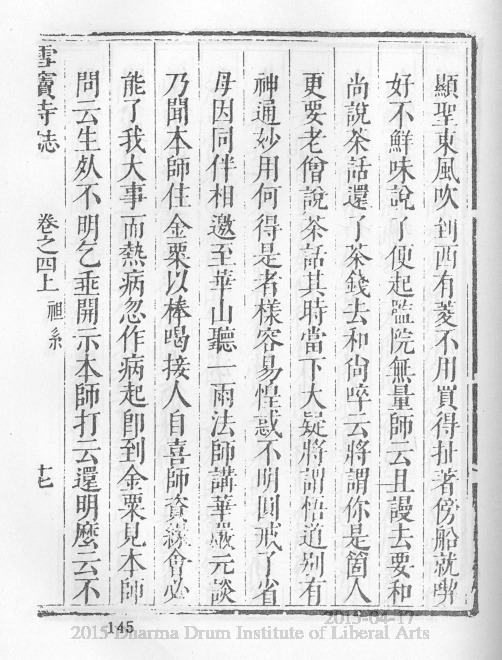 顯聖東風吹到西有菱不用買得扯著傍船就與
好不鮮味說了便起監院無量師云且謾去要和
尚說茶話還了茶錢去和尚啐云將謂你是箇人
更要老僧說茶話其時當下大疑將謂悟道別有
神通妙用何得是者樣容易惶惑不明圓戒了省
母因同伴相邀至華山聽一雨法師講華嚴元談
乃聞本師住金粟以棒喝接人自喜師資緣會必
能了我大事而熱病忽作病起卽到金粟見本師
問云生死不明乞垂開示本師打云還明麼云不
雪竇寺誌 卷之四上 祖系 十七
145
2015-04-17
2015 Dharma Drum Institute of Liberal Arts